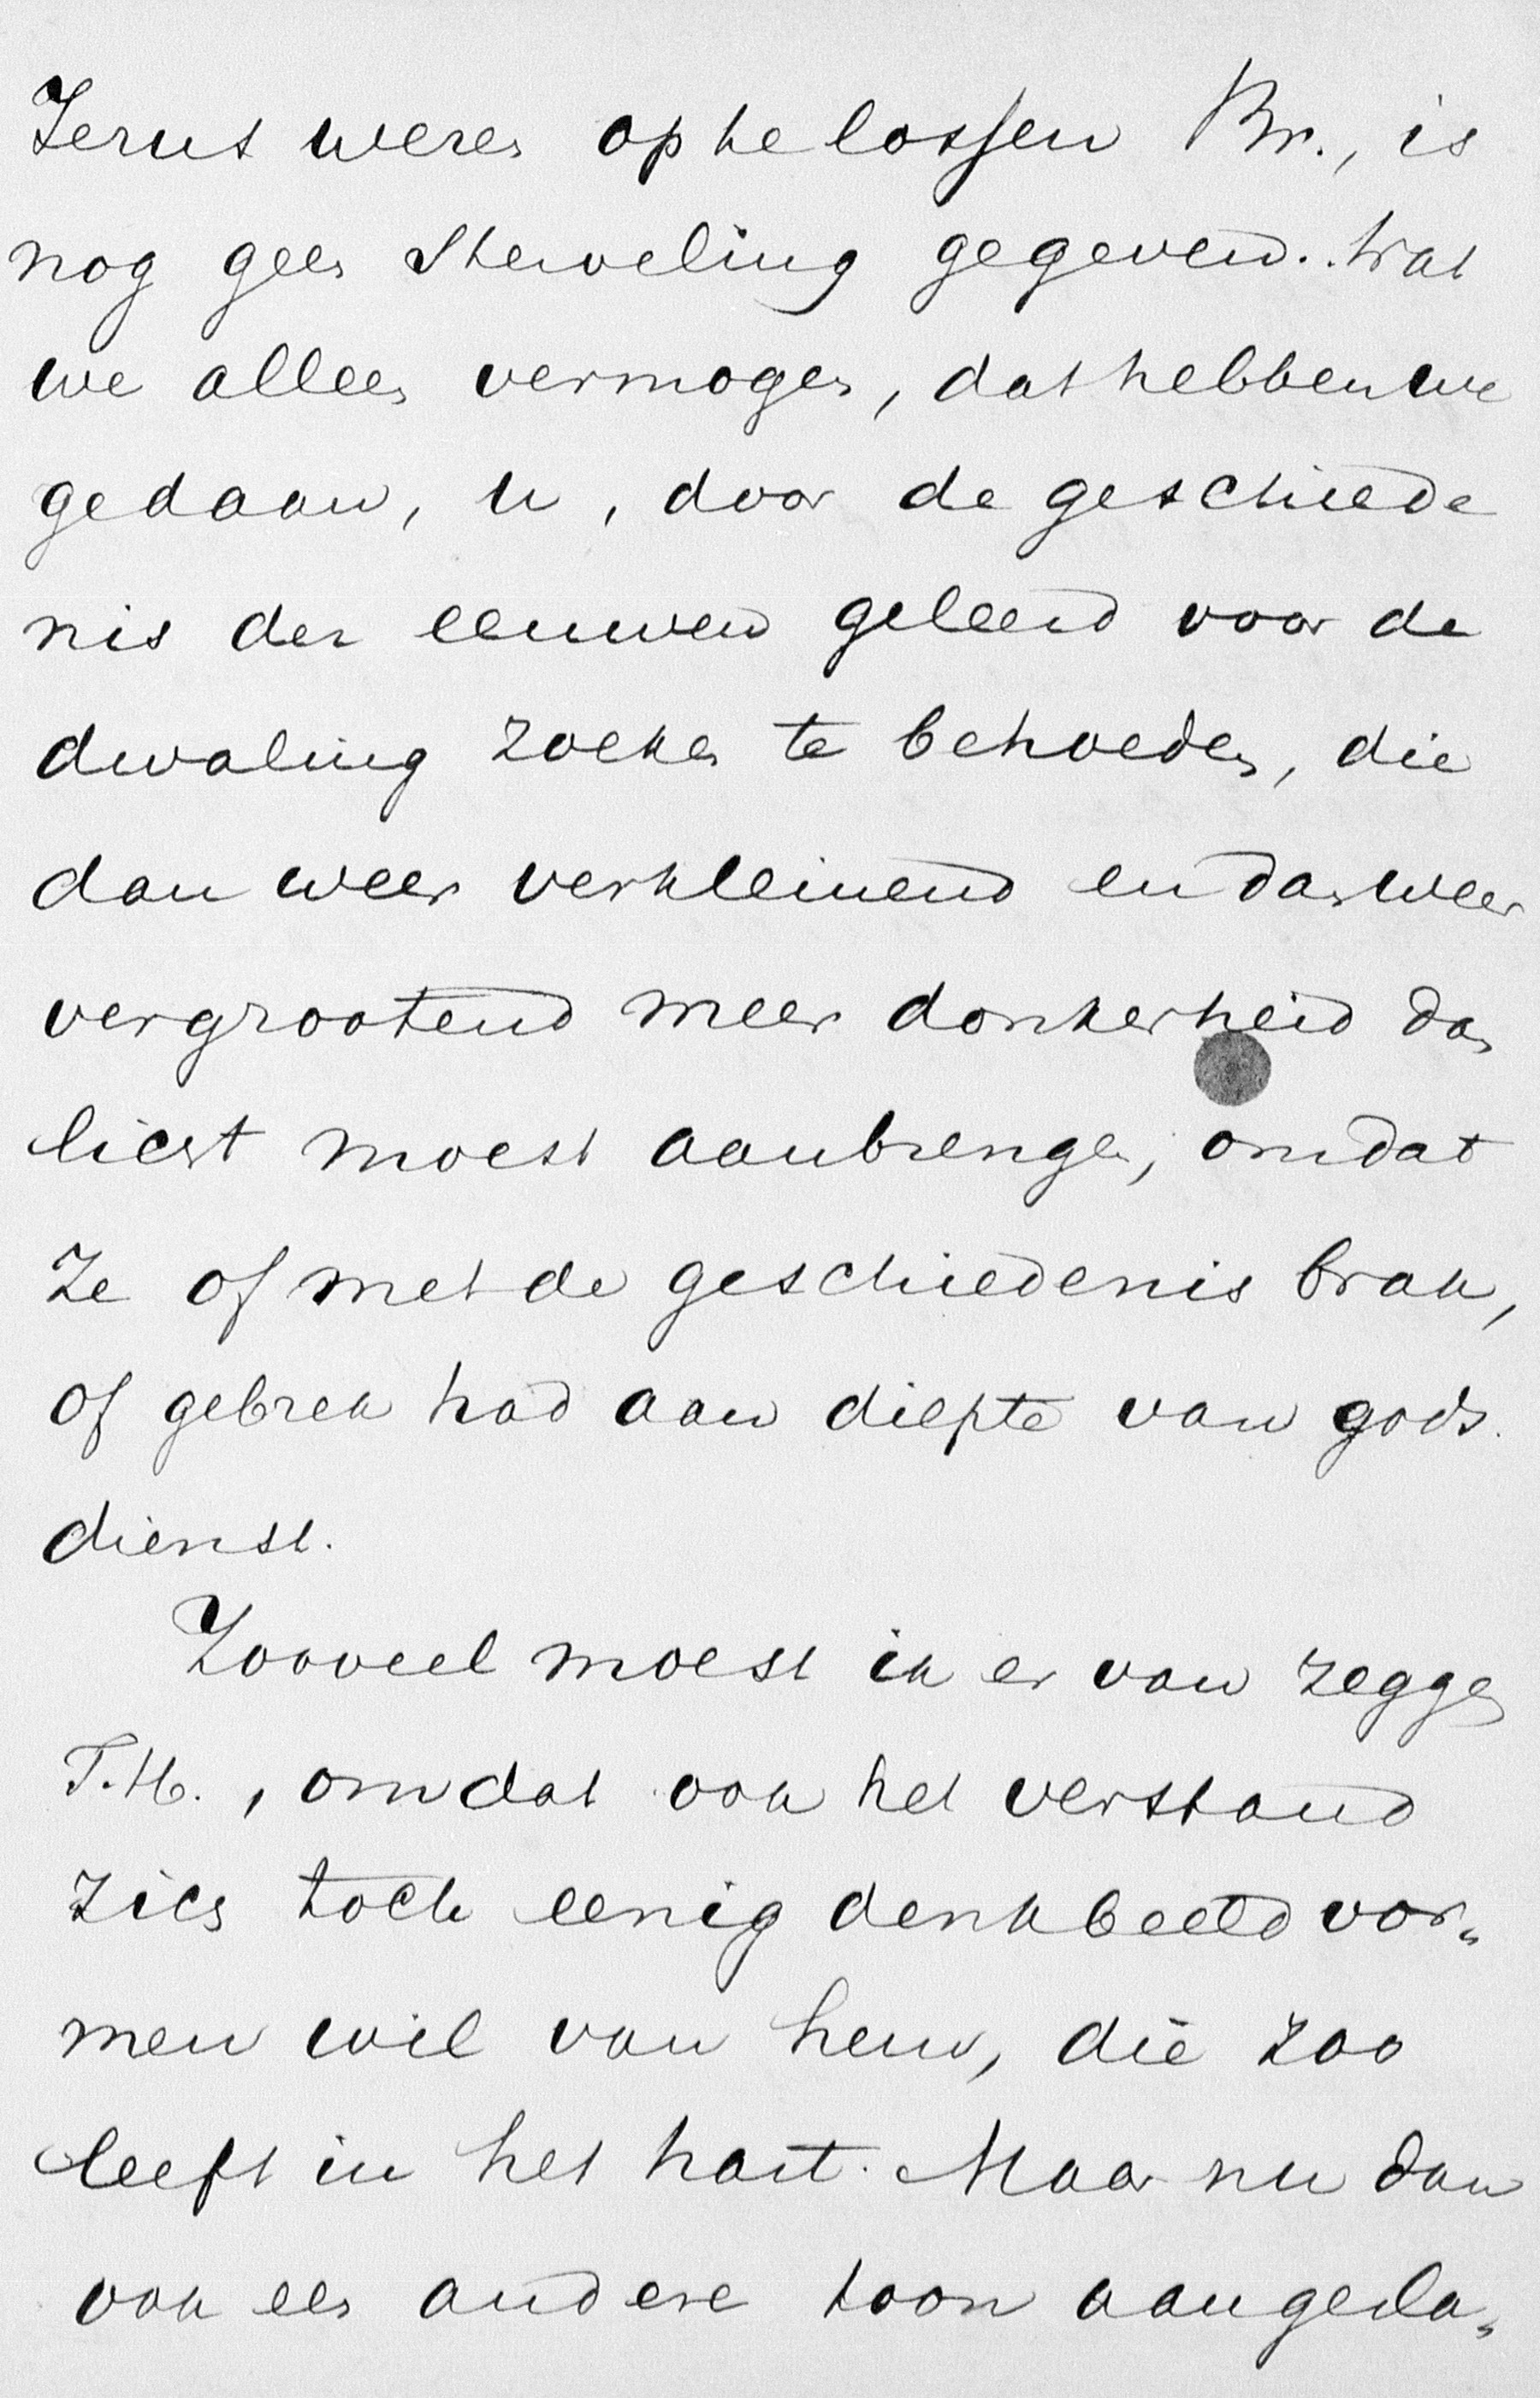 Jezus wezen op te lossen Br., is
nog geen sterveling gegeven. Wat
we alleen vermogen, dat hebben we
gedaan, u, door de geschiede
nis der eeuwen geleerd voor de
dwaling zoeken te behoeden, die
dan weer verkleinend en dan weer
vergrootend meer donkerheid dan
licht moest aanbrengen, omdat
ze of met de geschiedenis brak,
of gebrek had aan diepte van gods.
dienst.
Zooveel moest ik er van zeggen
T.H., omdat ook het verstand
zich toch eenig denkbeeld vor„
men wil van hem, die zoo
leeft in het hart. Maar nu dan
ook een andere toon aangesla„